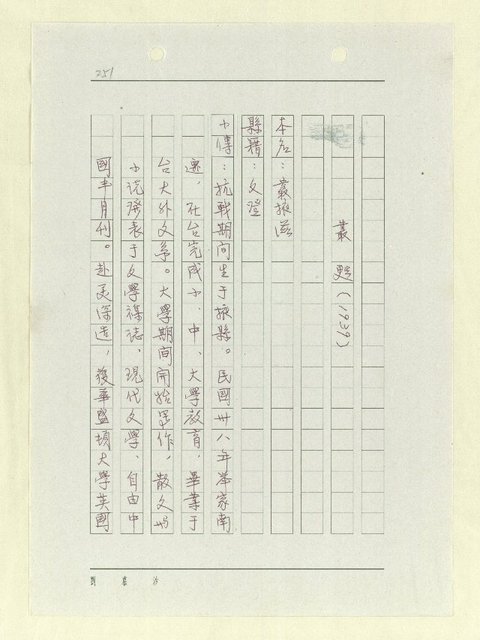 251
叢甦(1939)
本名：叢掖滋
縣籍：文登
小傳：抗戰期间生于掖縣。民國卅八年举家南
遷，在台完成小、中、大學教育，畢業于
台大外文系。大學期间開始写作，散文與
小说發表于文學襍誌、现代文學、自由中
國半月刊。赴美深造，獲華盛頓大學英國